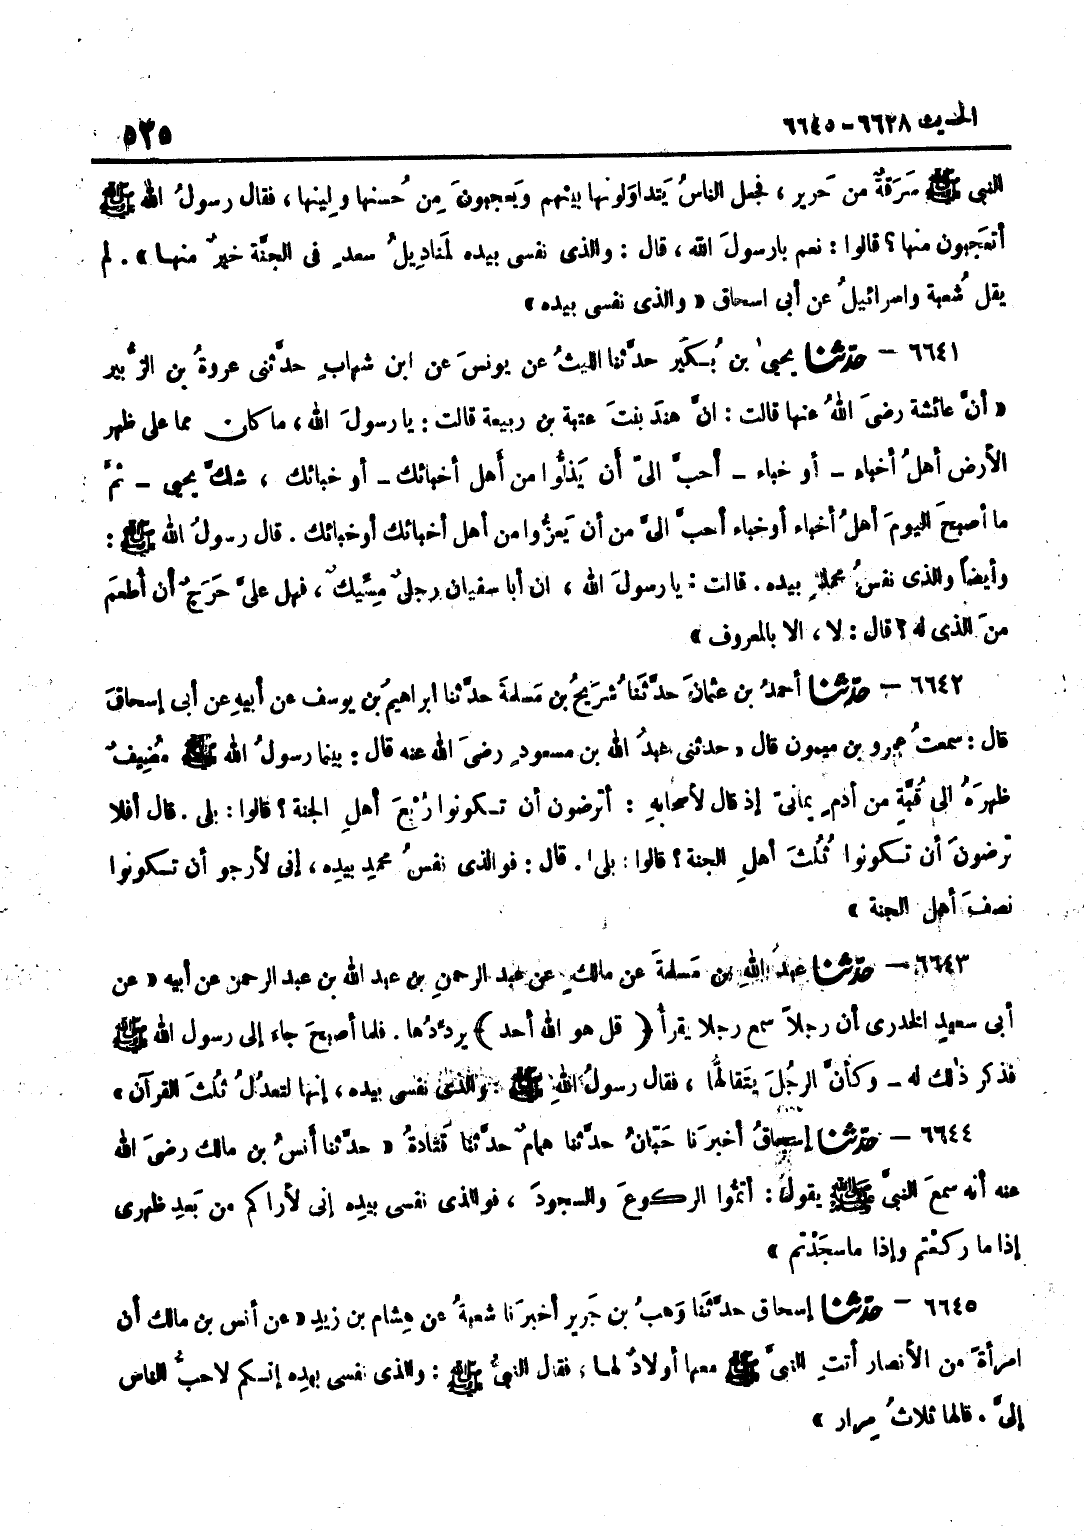 الحديث ٦٦٢٨ - ٦٦٤٥
٥٢٥
النبى ﷺ سَرَقةٌ من حَرير ، فجعل الناسُ يَتداوَلونها بينهم ويَعجبونَ مِن حُسنها ولِينها ، فقال رسولُ الله ﷺ
أتعجَبون منها ؟ قالوا : نعم يارسولَ الله ، قال : والذى نفسى بيده لَمَناديلُ سعدٍ فى الجنَّة خيرٌ منهـا » . لم
يقل شُعبة واسرائيلُ عن أبى اسحاق « والذى نفسى بيده »
٦٦٤١ - حدّثنا يحيىٰ بن بُـكَير حدَّثنا الليثُ عن يونسَ عن ابن شهابٍ حدَّثنى عروةُ بن الزُّبير
« أنَّ عائشة رضىَ اللهُ عنها قالت : انَّ هندَ بنتَ عتبة بن ربيعة قالت : يا رسولَ الله ، ما كان مما على ظهر
الأرض أهلُ أخباءٍ - أو خباء - أحبَّ الىّ أن يَذلُّوا من أهل أخبائك - أو خبائك ، شكَّ يحيى - ثمَّ
ما أصبحَ اليومَ أهلُ أخباء أوخباء أحبَّ الىَّ من أن يَعزُّوا من أهل أخبائك أوخبائك . قال رسولُ الله ﷺ :
وأيضاً والذى نفسُ محمدٍ بيده . قالت : يا رسولَ الله ، ان أبا سفيان رجلٌ مِسِّيكٌ ، فهل علىَّ حَرَجٌ أن أُطعمَ
منَ الذى له ؟ قال : لا ، الا بالمعروف »
٦٦٤٢ - حدّثنا أحمدُ بن عثمانَ حدَّثَنا شُرَيحُ بن مَسلمة حدَّثنا ابراهيمُ بن يوسف عن أبيهِ عن أبى إسحاقَ
قال : سمعتُ عمرو بن ميمون قال « حدثنى عبدُ الله بن مسعودٍ رضىَ الله عنه قال : بينما رسولُ الله ﷺ مُضِيفٌ
ظهرَهُ الى قُبَّةٍ من أدَمٍ يمانىّ إذ قال لأصحابهِ : أترضون أن تـكونوا رُبْعَ أهلِ الجنة ؟ قالوا : بلى . قال أفلا
ترضونَ أن تـكونوا ثُلُثَ أهلِ الجنة ؟ قالوا : بلىٰ . قال : فوالذى نفسُ محمدٍ بيدِه ، إنى لأرجو أن تـكونوا
نصفَ أهل الجنة »
٦٦٤٣ - حدّثنا عبدُ اللهِ بن مَسلمةَ عن مالكٍ عن عبد الرحمنِ بن عبد الله بن عبد الرحمن عن أبيه « عن
أبى سعيدٍ الخدرى أن رجلاً سمع رجلا يقرأُ ( قل هو الله أحد ) يردِّدُها . فلما أصبحَ جاء إلى رسول الله ﷺ
فذكر ذٰلك له - وكأنَّ الرجُلَ يتَقالُّها ، فقال رسولُ اللهِ ﷺ : والذى نفسى بيده ، إنها لتعدلُ ثلثَ القرآن »
٦٦٤٤ - حدّثنا إسحاقُ أخبرَنا حَبّانُ حدَّثنا همامٌ حدَّثنا قتادةُ « حدَّثنا أنسُ بن مالك رضىَ الله
عنه أنه سمعَ النبىَّ ﷺ يقولُ : أتمُّوا الركوعَ والسجودَ ، فوالذى نفسى بيدِه إنى لأراكم من بَعدِ ظهرى
إذا ما ركعْتم وإذا ماسجَدْتم »
٦٦٤٥ - حدّثنا إسحاق حدَّثَنا وَهبُ بن جَرير أخبرَنا شعبةُ عن هشام بن زيدٍ « عن أنس بن مالك أن
امرأةً من الأنصار أتتِ النبىَّ ﷺ معها أولادٌ لهـا ، فقال النبىُّ ﷺ : والذى نفسى بيدِه إنـكم لأحبُّ الناس
إلىَّ . قالها ثلاثُ مِرار »